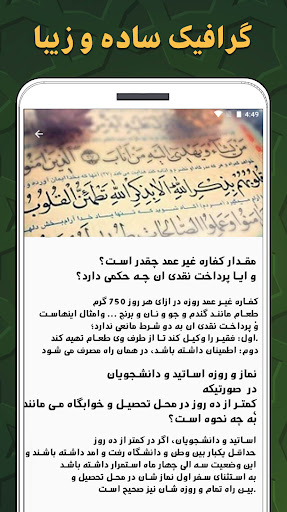 گرافیک ساده و زیبا
4:49
الا بذكر الله تطمئن القلوب
مقدار کفاره غیر عمد چقدر است؟
و ایا پرداخت نقدی ان چه حکمی دارد؟
کفاره غیر عمد روزه در ازای هر روز 750 گرم
طعام مانند گندم و جو و نان و برنج ... وامثال اینهاست
و پرداخت نقدی ان به دو شرط مانعی ندارد؟
.اول: فقیر را وکیل کند تا از طرف وی طعام تهیه کند
دوم: اطمینان داشته باشد، در همان راه مصرف می شود
نماز و روزه اساتید و دانشجویان
در صورتیکه
کمتر از ده روز در محل تحصیل و خوابگاه می مانند
به چه نحوه است؟
اساتید و دانشجویان، اگر در کمتر از ده روز
حداقل یکبار بین وطن و دانشگاه رفت و امد داشته باشند و
این وضعیت سه الی چهار ماه استمرار داشته باشد
به استثنای سفر اول نماز شان در محل تحصیل و
.بین راه تمام و روزه شان نیز صحیح است